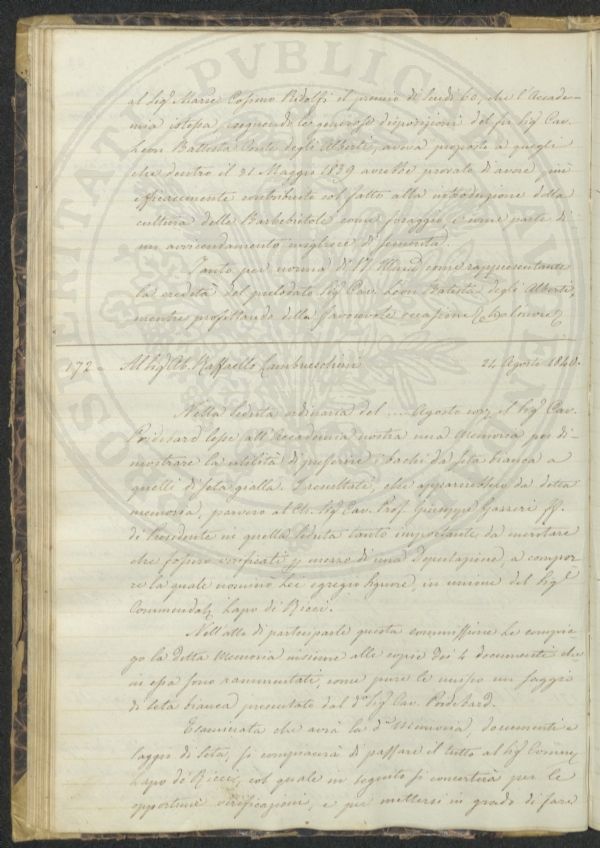 al Sig.r March. Cosimo Ridolfi il premio di Scudi 60, che l'Accade-
mia istessa, seguendo le generose disposizioni del fu Sig.r Cav.
Leon Battista Conte degli Alberti, aveva proposto a quegli
che dentro il 31 Maggio 1839 avrebbe provato di avere, più
efficacemente contribuito col fatto alla introduzione della
cultura delle Barbebietole come foraggio, e come parte di
un avvicendamento migliore di sementa.
Tanto per norma di V.S. Illma come rappresentante
la eredità del prelodato Sig.r Cav. Leon Battista degli Alberti,
mentre profittando della favorevole occasione ho l'onore
172 = Al Sig.r Ab. Raffaello Lambruschini 24 Agosto 1840.
Nella Seduta ordinaria del ... Agosto il Sig.r Cav.
Poidebard lesse all'Accademia nostra una Memoria per di-
mostrare la utilità di preferire i bachi da seta bianca a
quelli di seta gialla. I resultati, che apparirebbero da detta
memoria, parvero al Ch. Sig. Cav. Prof. Giuseppe Gazzeri ff.
di Presidente in quella Seduta tanto importante da meritare
che fossero verificati p mezzo di una Deputazione, a compor-
re la quale nominò Lei egregio Signore, in unione del Sig.r
Commendat. Lapo de Ricci.
Nell'atto di parteciparle questa commissione Le compie-
go la detta Memoria insieme alle copie dei 4 documenti che
in essa sono rammentati, come pure Le unisco un saggio
di seta bianca presentato dal d.o Sig. Cav. Poidebard.
Esaminata che avrà la d.a Memoria, documenti e
saggio di seta, si compiacerà di passare il tutto al Sig. Comm.
Lapo de Ricci, col quale in seguito si concerterà per le
opportune verificazioni, e per mettersi in grado di fare
PROSPERITATI PVBLICAE